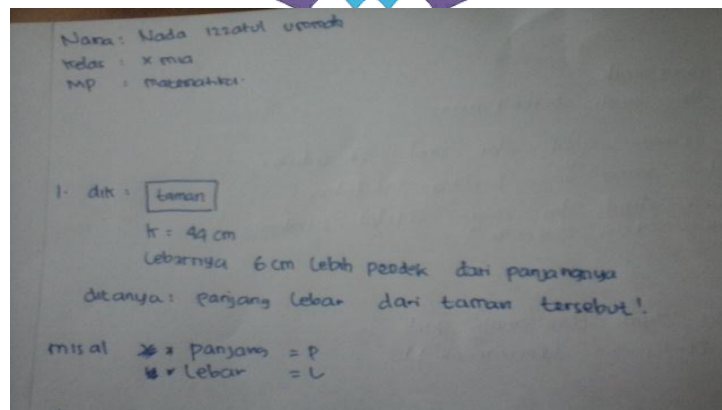 Nama : Nada Izzatul
Kelas : X mia
MP : matematika.
1. dik : taman
k = 44 cm
Lebarnya 6 cm lebih pendek dari panjangnya
ditanya : panjang lebar dari taman tersebut!
misal * panjang = P
* Lebar = L